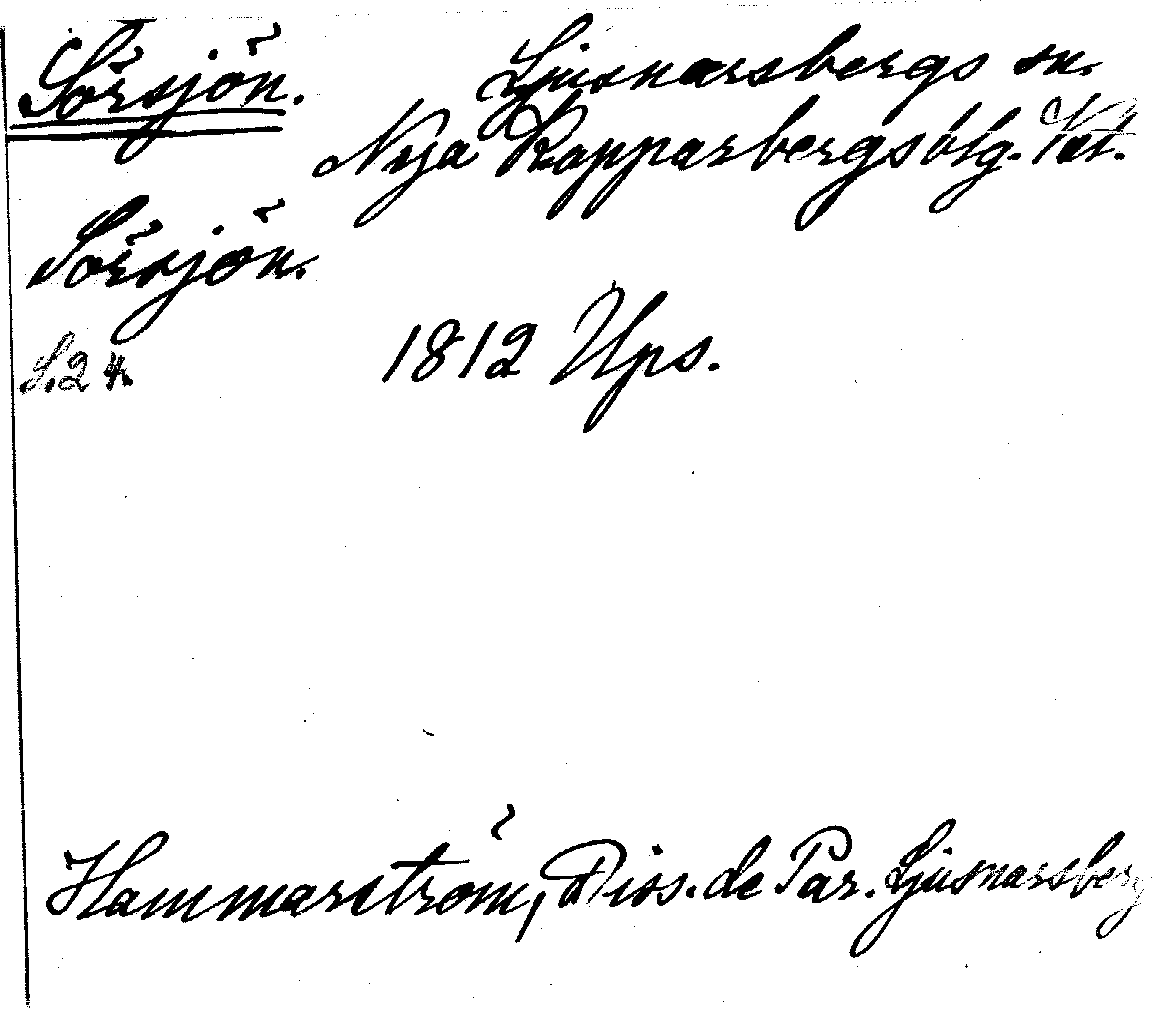 Sörsjön. Ljusnarsbergs sn.
Nya Kopparbergs blg. Vstl.
Sörsjön.
S. 24. 1812 Ups.
Hammarström, Diss. de Par. Ljusnarsberg